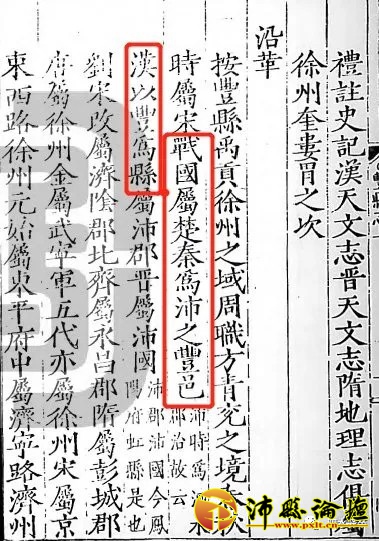 禮註史記漢天文志晉天文志隋地理志俱屬
徐州奎婁胃之次
沿革
按豐縣禹貢徐州之域周職方青兗之境春秋
時屬宋戰國屬楚秦爲沛之豐邑沛時爲沛郡治故云
漢以豐爲縣屬沛郡晉屬沛國沛郡沛國今鳳陽府虹縣是也
劉宋改屬濟陰郡北齊屬永昌郡隋屬彭城郡
唐屬徐州金屬武寧軍五代亦屬徐州宋屬京
東西路徐州元始屬東平府中屬濟寧路濟州
沛縣論壇
www.pxlt.cn